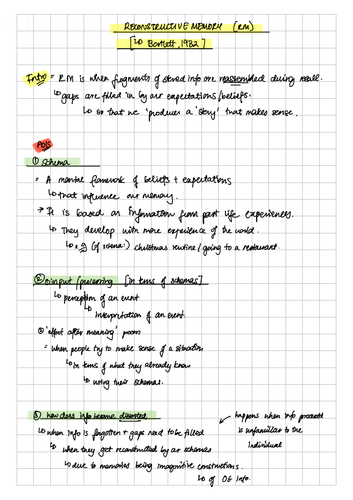 RECONSTRUCTIVE MEMORY (RM)
[↳ Bartlett, 1932]
Intro = RM is when fragments of stored info are reassembled during recall.
↳ gaps are filled in by our expectations/beliefs.
↳ so that we 'produce a 'story' that makes sense.
AO1s
① Schema
• A mental framework of beliefs + expectations
↳ that influence our memory.
→ It is based on Information from past life experiences.
↳ They develop with more experience of the world.
↳ e.g (of schema:) Christmas routine / going to a restaurant.
② input / processing [in terms of schemas]
↳ perception of an event
↳ interpretation of an event.
'effort after meaning'
= when people try to make sense of a situation
↳ in terms of what they already know
↳ using their schemas.
③ how does info become distorted
↳ when info is forgotten + gaps need to be filled
↳ when they get reconstructed by our schemas
↳ due to memories being imaginative constructions.
↳ of OG info.
↙ happens when info processed
is unfamiliar to the
individual